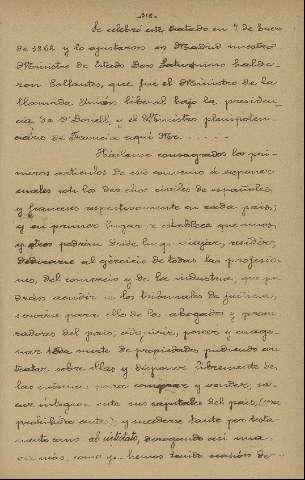 -218-
Se celebró este tratado en 7 de Enero
de 1862 y lo ajustaron en Madrid nuestro
Ministro de Estado Don Saturnino Calde-
ron Collantes, que fué el Ministro de la
llamada Unión liberal bajo la presiden-
cia de O'Donell, y el Ministro plenipoten-
ciario de Francia aquí Mr. . . . . . .
Hállanse consagrados los pri-
meros artículos de este convenio á
cuales son los derechos civiles de españoles
y franceses respectivamente en cada país,
y en primer lugar se establece que unos
y otros podrán desde luego viajar, residir,
dedicarse al ejercicio de todas las profesio-
nes, del comercio y de la industria, que po-
drán acudir a los tribunales de justicia,
para ello de los abogados y procu-
radores del país, adquirir, poseer y enage-
nar toda suerte de propiedades, pudiendo con-
tratar sobre ellas y disponer libremente de
las mismas, para comprar y vender, sa-
car íntegramente sus capitales del país,
prohibido antes) y sucederse tanto por testa-
mento como ab intestato, derogando así una
vez más, como ya hemos tenido ocasión de